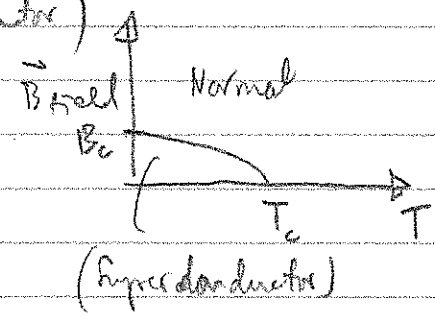 B field
Normal
Bc
Tc
T
(Superconductor)